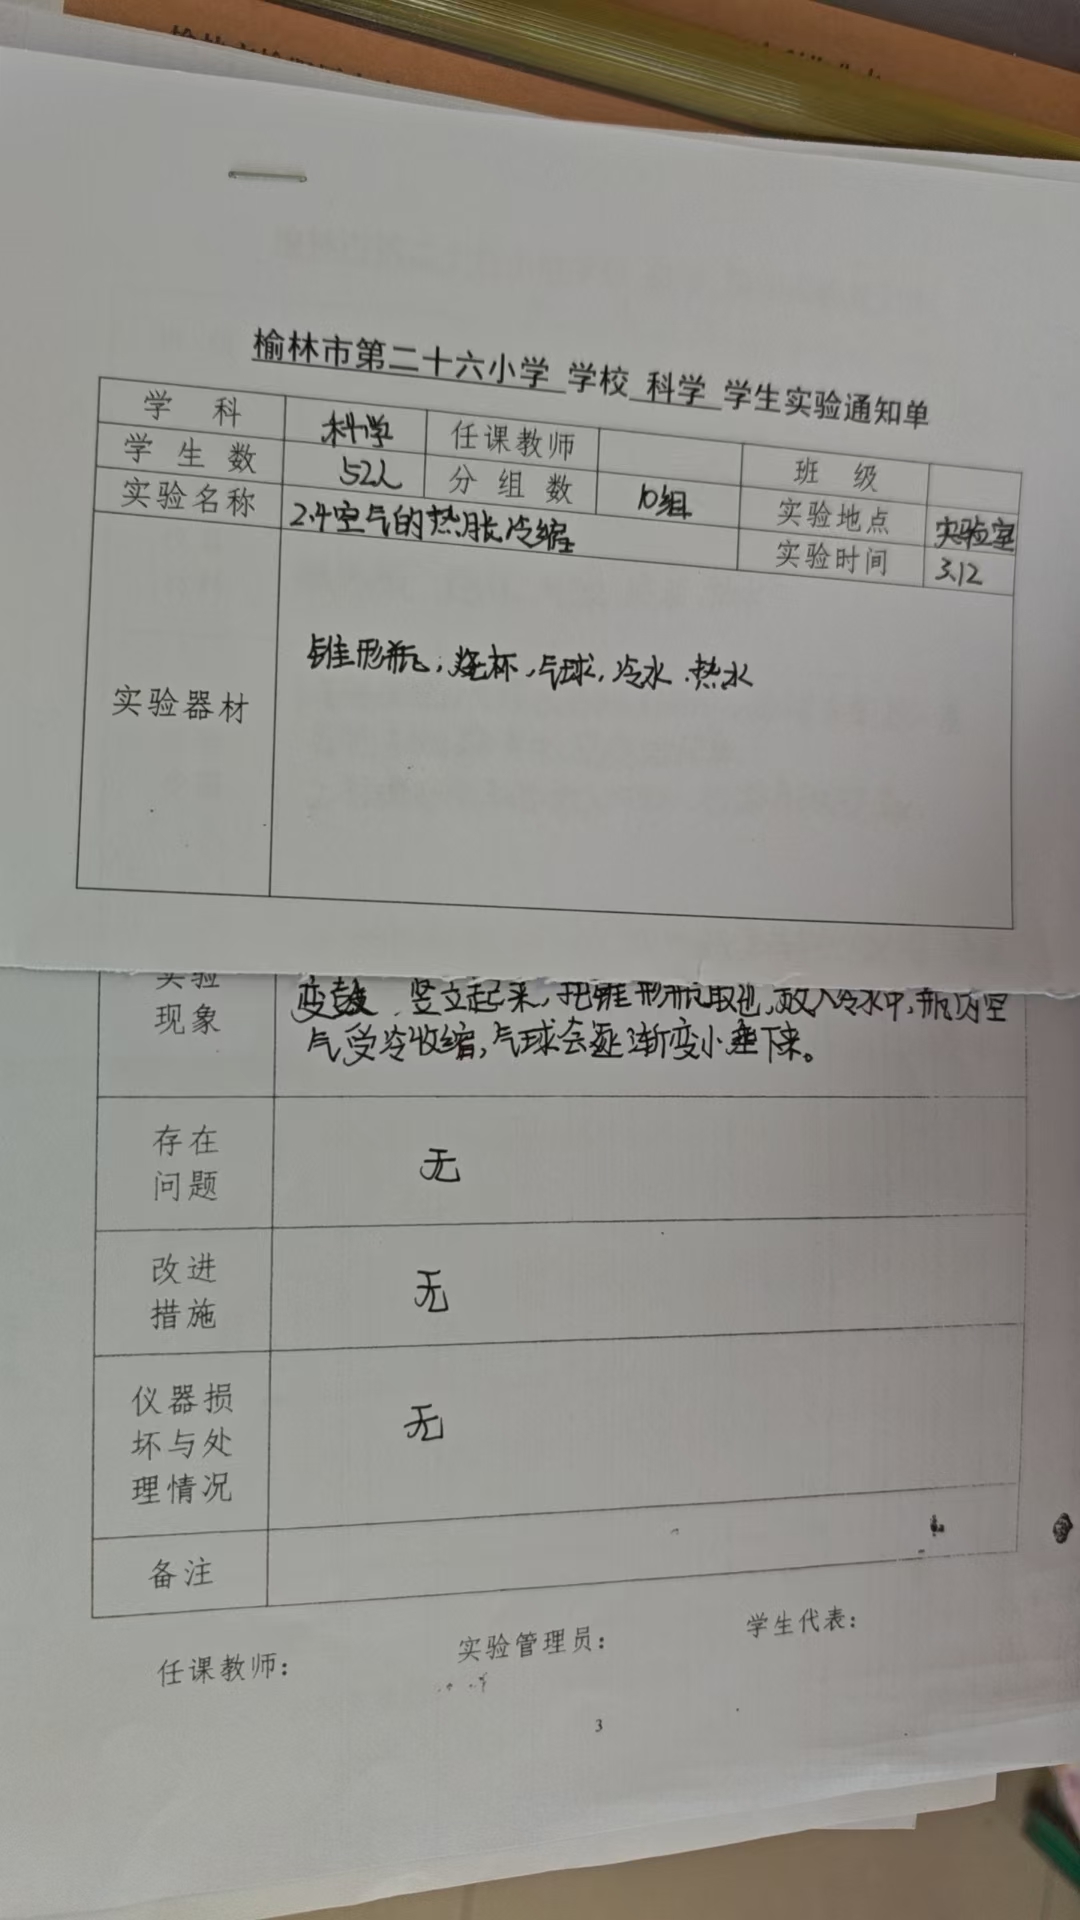 榆林市第二十六小学 学校 科学 学生实验通知单
学 科 科学 任课教师 班 级
学生数 52人 分组数 10组 实验地点 实验室
实验名称 2.4空气的热胀冷缩 实验时间 3.12
实验器材 锥形瓶,烧杯,气球,冷水、热水
实验
现象
变鼓,竖立起来,把锥形瓶取出,放入冷水中,瓶内空
气受冷收缩,气球会逐渐变小垂下来。
存在
问题
无
改进
措施
无
仪器损
坏与处
理情况
无
备注
任课教师: 实验管理员: 学生代表:
3